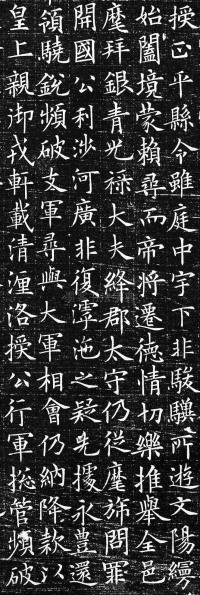 授正平縣令雖庭中宇下非駿驥所遊文陽縵
始闔境蒙賴尋而帝將遷德情切樂推舉全邑
麾拜銀青光祿大夫絳郡太守仍從麾旆問罪
開國公利涉河廣非復滹沲之疑先據永豊還
領驍銳頻破支軍尋與大軍相會仍納降款以
皇上親御戎軒載清瀍洛授公行軍惣管頻破